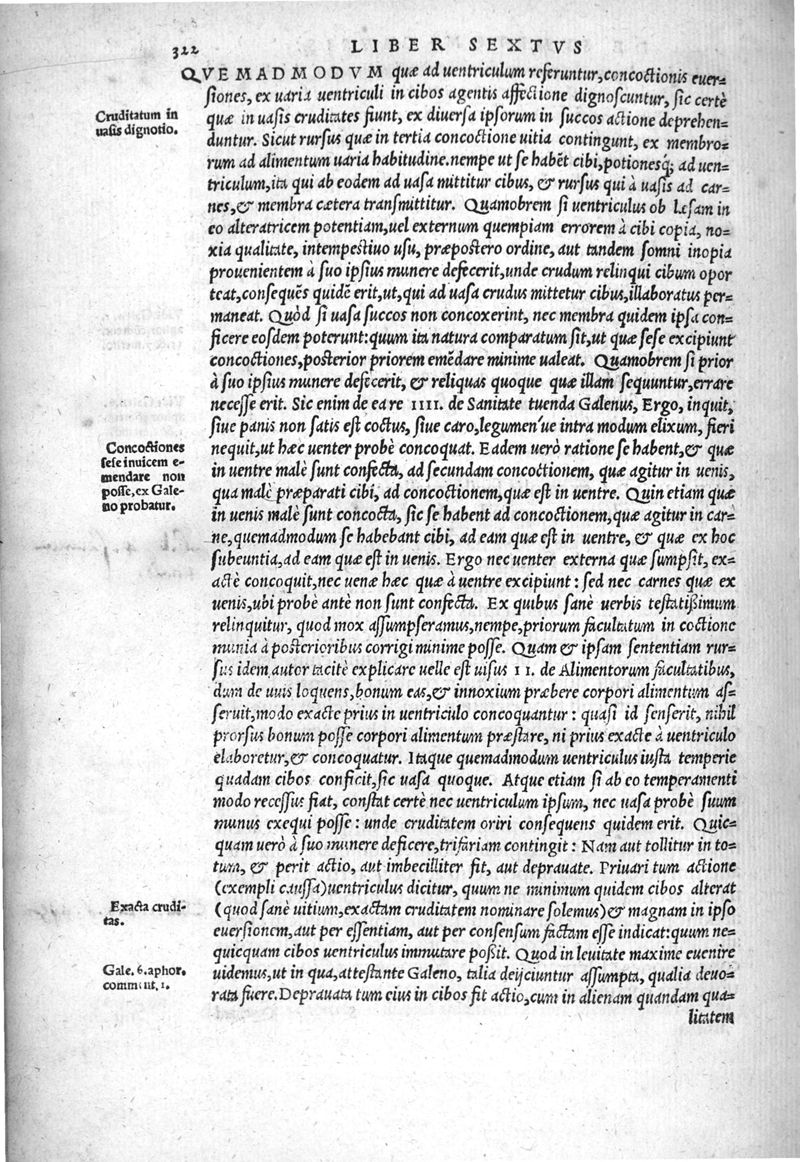 322 LIBER SEXTVS
QVEMADMODVM quæ ad uentriculum referuntur, concoctionis euer=
siones, ex uaria uentriculi in cibos agentis affectione dignoscuntur, sic certè
Cruditatum in
uasis dignotio.
quæ in uasis cruditates fiunt, ex diuersa ipsorum in succos actione deprehen=
duntur. Sicut rursus quæ in tertia concoctione uitia contingunt, ex membro=
rum ad alimentum uaria habitudine. nempe ut se habēt cibi, potionesq́; ad uen=
triculum, ita qui ab eodem ad uasa mittitur cibus, & rursus qui à uasis ad car=
nes, & membra cætera transmittitur. Quamobrem si uentriculus ob læsam in
eo alteratricem potentiam, uel externum quempiam errorem à cibi copia, no=
xia qualitate, intempestiuo usu, præpostero ordine, aut tandem somni inopia
prouenientem à suo ipsius munere defecerit, unde crudum relinqui cibum opor
teat, consequēs quidē erit, ut, qui ad uasa crudus mittetur cibus, illaboratus per=
maneat. Quòd si uasa succos non concoxerint, nec membra quidem ipsa con=
ficere eosdem poterunt: quum ita natura comparatum sit, ut quæ sese excipiunt
concoctiones, posterior priorem emēdare minime ualeat. Quamobrem si prior
à suo ipsius munere defecerit, & reliquas quoque quæ illam sequuntur, errare
necesse erit. Sic enim de ea re IIII. de Sanitate tuenda Galenus, Ergo, inquit,
siue panis non satis est coctus, siue caro, legumen'ue intra modum elixum, fieri
Concoctiones
sese inuicem e-
mendare non
posse, ex Gale-
no probatur.
nequit, ut hæc uenter probè concoquat. Eadem uerò ratione se habent, & quæ
in uentre malè sunt confecta, ad secundam concoctionem, quæ agitur in uenis,
qua malè præparati cibi, ad concoctionem, quæ est in uentre. Quin etiam quæ
in uenis malè sunt concocta, sic se habent ad concoctionem, quæ agitur in car=
ne, quemadmodum se habebant cibi, ad eam quæ est in uentre, & quæ ex hoc
subeuntia, ad eam quæ est in uenis. Ergo nec uenter externa quæ sumpsit, ex=
actè concoquit, nec uenæ hæc quæ à uentre excipiunt: sed nec carnes quæ ex
uenis, ubi probè antè non sunt confecta. Ex quibus sanè uerbis testatißimum
relinquitur, quod mox assumpseramus, nempe, priorum facultatum in coctione
munia à posterioribus corrigi minime posse. Quam & ipsam sententiam rur=
sus idem autor tacitè explicare uelle est uisus II. de Alimentorum facultatibus,
dum de uuis loquens, bonum eas, & innoxium præbere corpori alimentum as=
seruit, modo exacte prius in uentriculo concoquantur: quasi id senserit, nihil
prorsus bonum posse corpori alimentum præstare, ni prius exacte à uentriculo
elaboretur, & concoquatur. Itaque quemadmodum uentriculus iusta temperie
quadam cibos conficit, sic uasa quoque. Atque etiam si ab eo temperamenti
modo recessus fiat, constat certè nec uentriculum ipsum, nec uasa probè suum
munus exequi posse: unde cruditatem oriri consequens quidem erit. Quic=
quam uerò à suo munere deficere, trifariam contingit: Nam aut tollitur in to=
tum, & perit actio, aut imbecilliter fit, aut deprauate. Priuari tum actione
(exempli caussa) uentriculus dicitur, quum ne minimum quidem cibos alterat
Exacta crudi-
tas.
(quod sanè uitium, exactam cruditatem nominare solemus) & magnam in ipso
euersionem, aut per essentiam, aut per consensum factam esse indicat: quum ne=
quicquam cibos uentriculus immutare poßit. Quod in leuitate maxime euenire
Gale. 6. aphor.
comment. 1.
uidemus, ut in qua, attestante Galeno, talia deijciuntur assumpta, qualia deuo=
rata fuere. Deprauata tum eius in cibos fit actio, cum in alienam quandam qua=
litatem